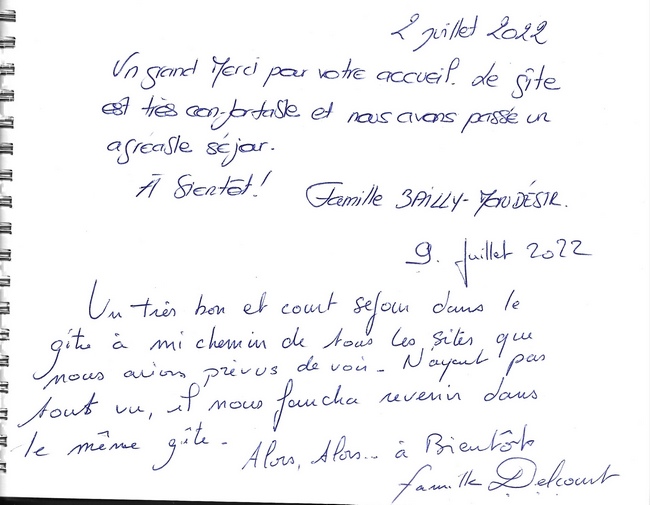 2 juillet 2022
Un grand Merci pour votre accueil. Le gîte
est très confortable et nous avons passé un
agréable séjour.
À bientôt!
Famille BAILLY-MONDÉSIR.
9. Juillet 2022
Un très bon et court sejour dans le
gîte à mi chemin de tous les sites que
nous avions prévus de voir - N'ayant pas
tout vu, il nous faudra revenir dans
le même gîte -
Alors, Alors... à Bientôt
famille Delcourt